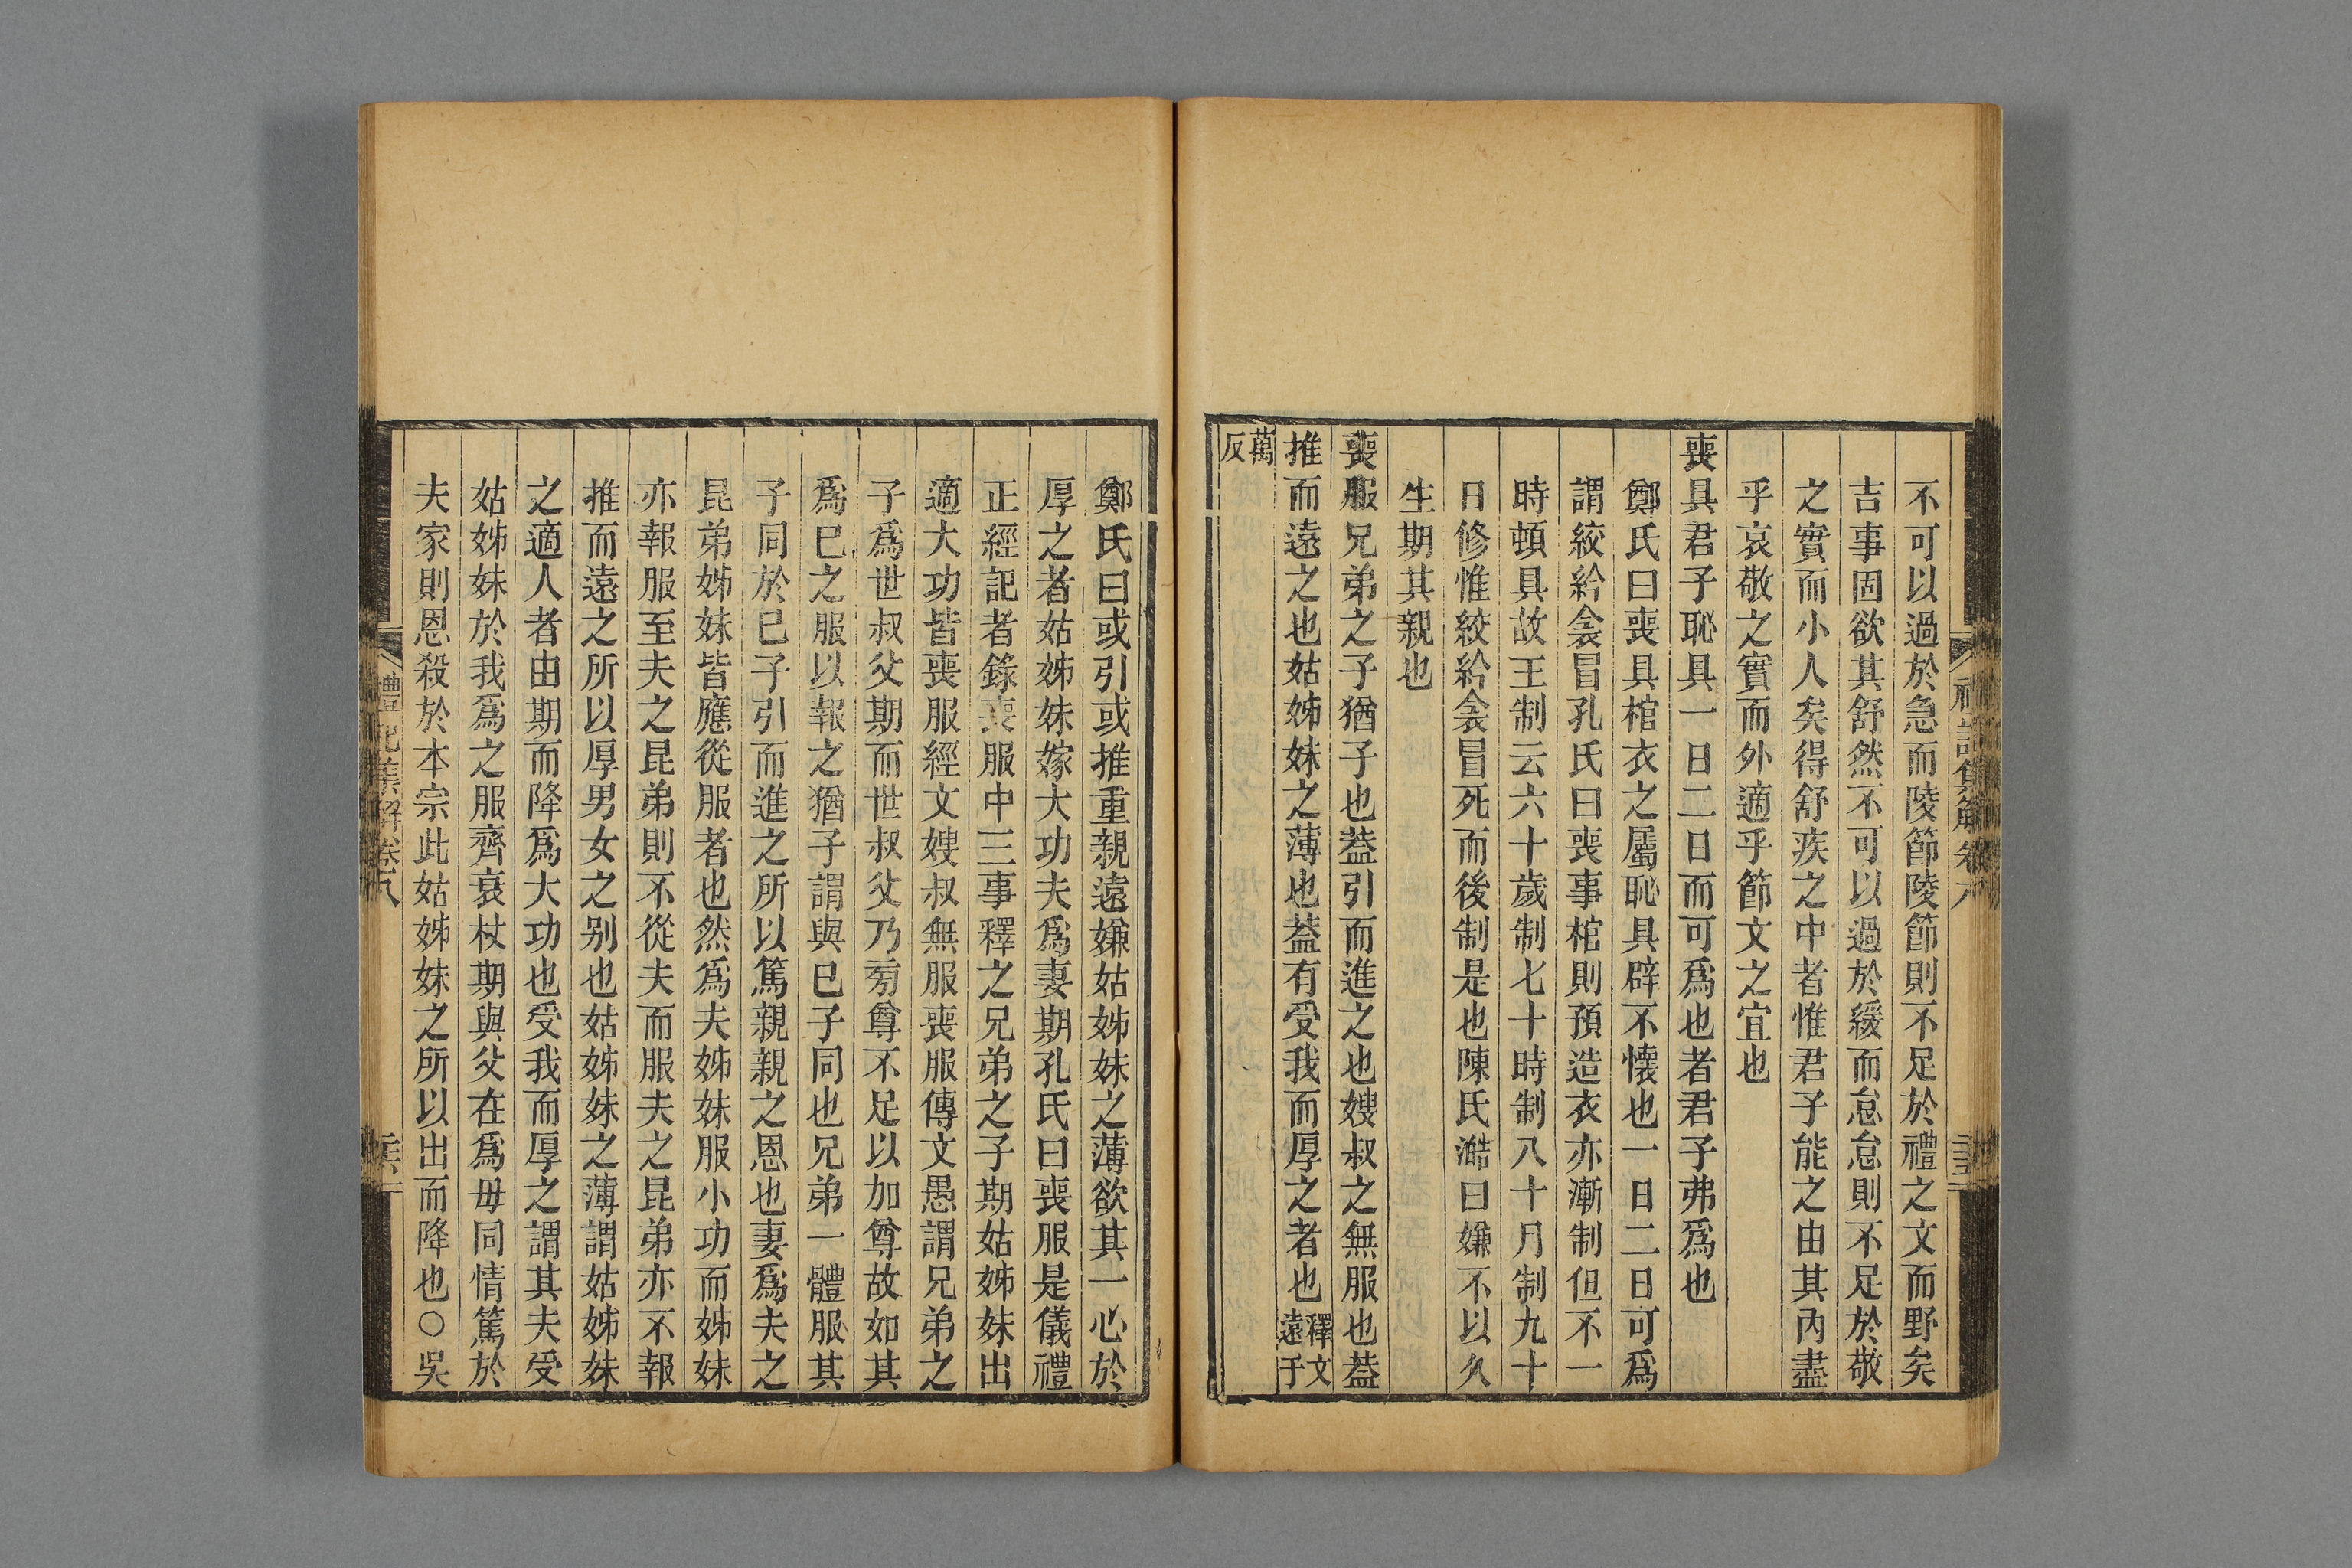 不可以過於急而陵節陵節則不足於禮之文而野矣
吉事固欲其舒然不可以過於緩而怠怠則不足於敬
之實而小人矣得舒疾之中者惟君子能之由其內盡
乎哀敬之實而外適乎節文之宜也
喪具君子恥具一日二日而可爲也者君子弗爲也
鄭氏曰喪具棺衣之屬恥具辟不懷也一日二日可爲
謂絞紟衾冒孔氏曰喪事棺則預造衣亦漸制但不一
時頓具故王制云六十歲制七十時制八十月制九十
日修惟絞紟衾冒死而後制是也陳氏澔曰嫌不以久
生期其親也
喪服兄弟之子猶子也蓋引而進之也嫂叔之無服也蓋
推而遠之也姑姊妹之薄也蓋有受我而厚之者也釋文遠于
萬反
鄭氏曰或引或推重親遠嫌姑姊妹之薄欲其一心於
厚之者姑姊妹嫁大功夫爲妻期孔氏曰喪服是儀禮
正經記者錄喪服中三事釋之兄弟之子期姑姊妹出
適大功皆喪服經文嫂叔無服喪服傳文愚謂兄弟之
子爲世叔父期而世叔父乃旁尊不足以加尊故如其
爲己之服以報之猶子謂與己子同也兄弟一體服其
子同於己子引而進之所以篤親親之恩也妻爲夫之
昆弟姊妹皆應從服者也然爲夫姊妹服小功而姊妹
亦報服至夫之昆弟則不從夫而服夫之昆弟亦不報
推而遠之所以厚男女之别也姑姊妹之薄謂姑姊妹
之適人者由期而降爲大功也受我而厚之謂其夫受
姑姊妹於我爲之服齊衰杖期與父在爲母同情篤於
夫家則恩殺於本宗此姑姊妹之所以出而降也○吳
禮記集解卷八